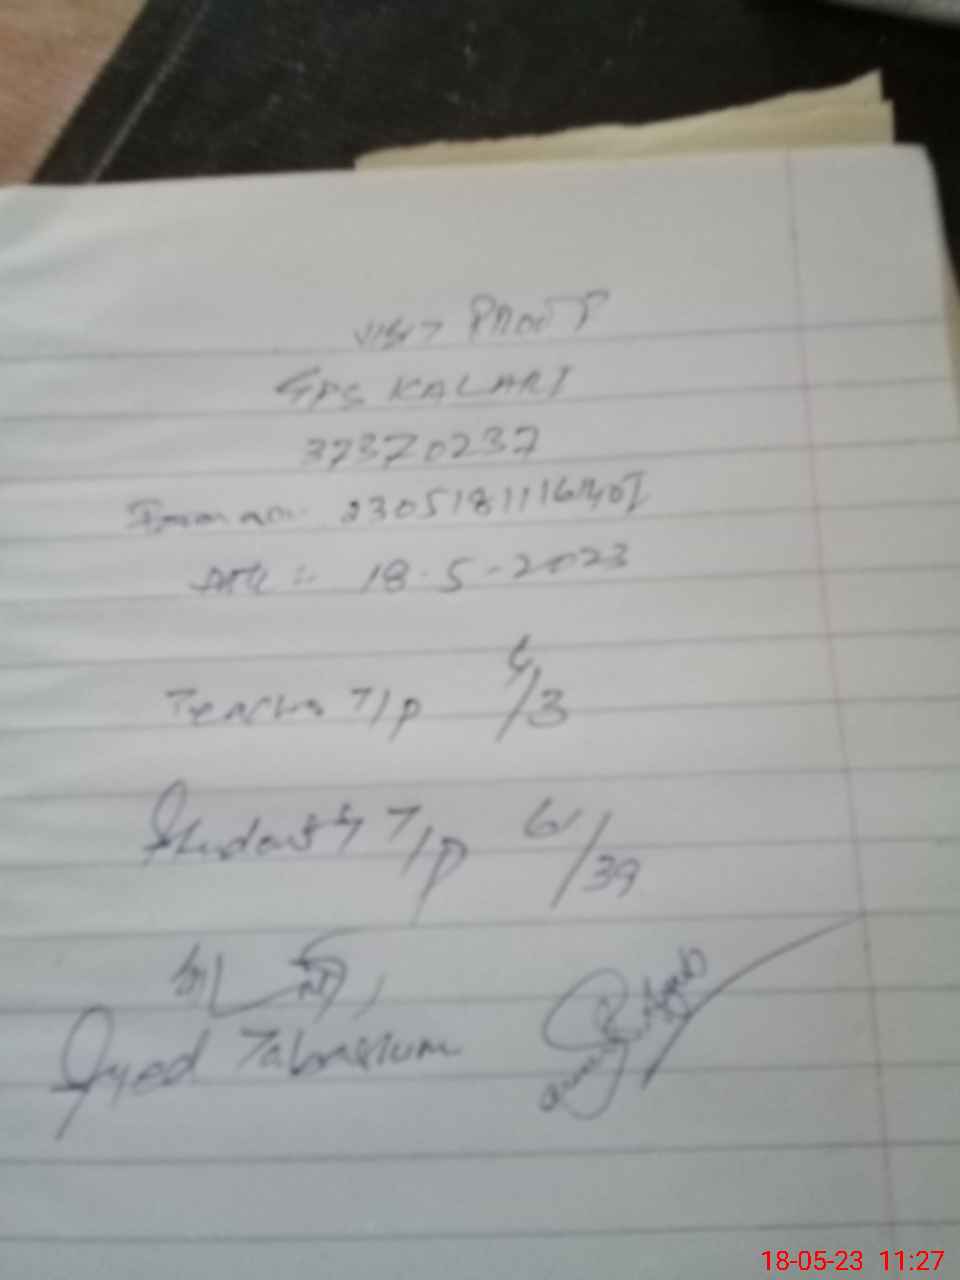 VISIT PROOF
GPS KALARI
37370237
230518111614OI
Date :- 18-5-2023
Teacher T/P 4/3
Students T/P 61/39
Syed Tabassum
18-05-23 11:27